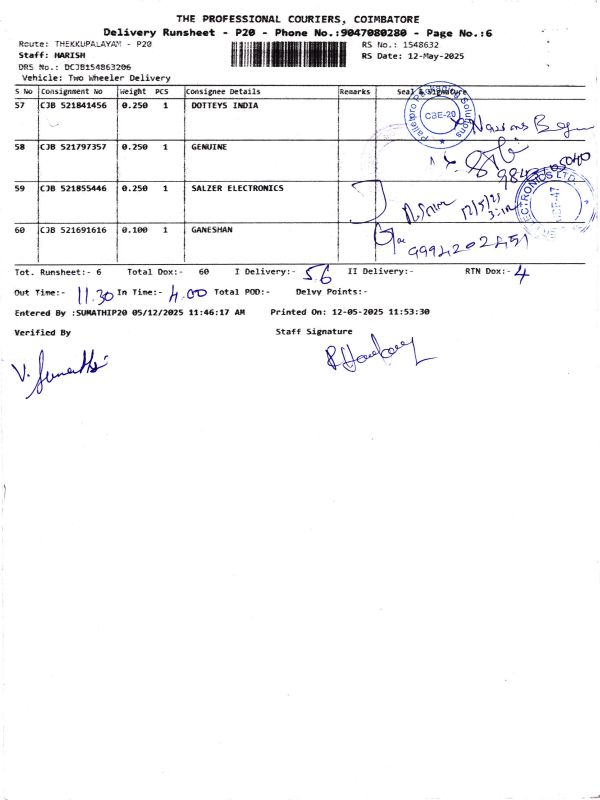 THE PROFESSIONAL COURIERS, COIMBATORE
Delivery Runsheet - P20 - Phone No.:9047080280 - Page No.:6
Route: THEKKUPALAYAM - P20
RS No.: 1548632
Staff: HARISH
RS Date: 12-May-2025
DRS No.: DCJB154863206
Vehicle: Two Wheeler Delivery
S No Consignment No Weight PCS Consignee Details Remarks Seal & Signature
57 CJB 521841456 0.250 1 DOTTEYS INDIA
CBE-20
58 CJB 521797357 0.250 1 GENUINE
59 CJB 521855446 0.250 1 SALZER ELECTRONICS
12/5/25
60 CJB 521691616 0.100 1 GANESHAN
9994202451
Tot. Runsheet:- 6 Total Dox:- 60 I Delivery:- 56 II Delivery:- RTN Dox:- 4
Out Time:- 11.30 In Time:- 4.00 Total POD:- Delvy Points:-
Entered By :SUMATHIP20 05/12/2025 11:46:17 AM Printed On: 12-05-2025 11:53:30
Verified By Staff Signature